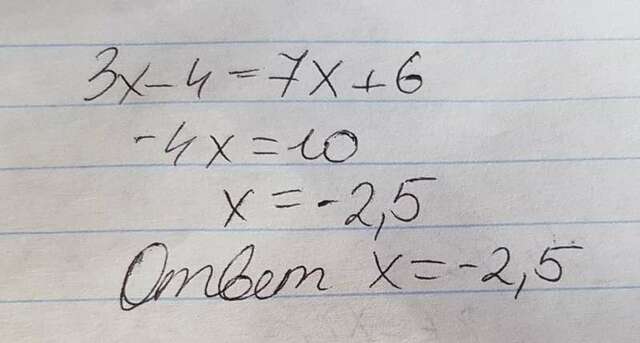 3x-4=7x+6
-4x=10
x=-2,5
Ответ x=-2,5